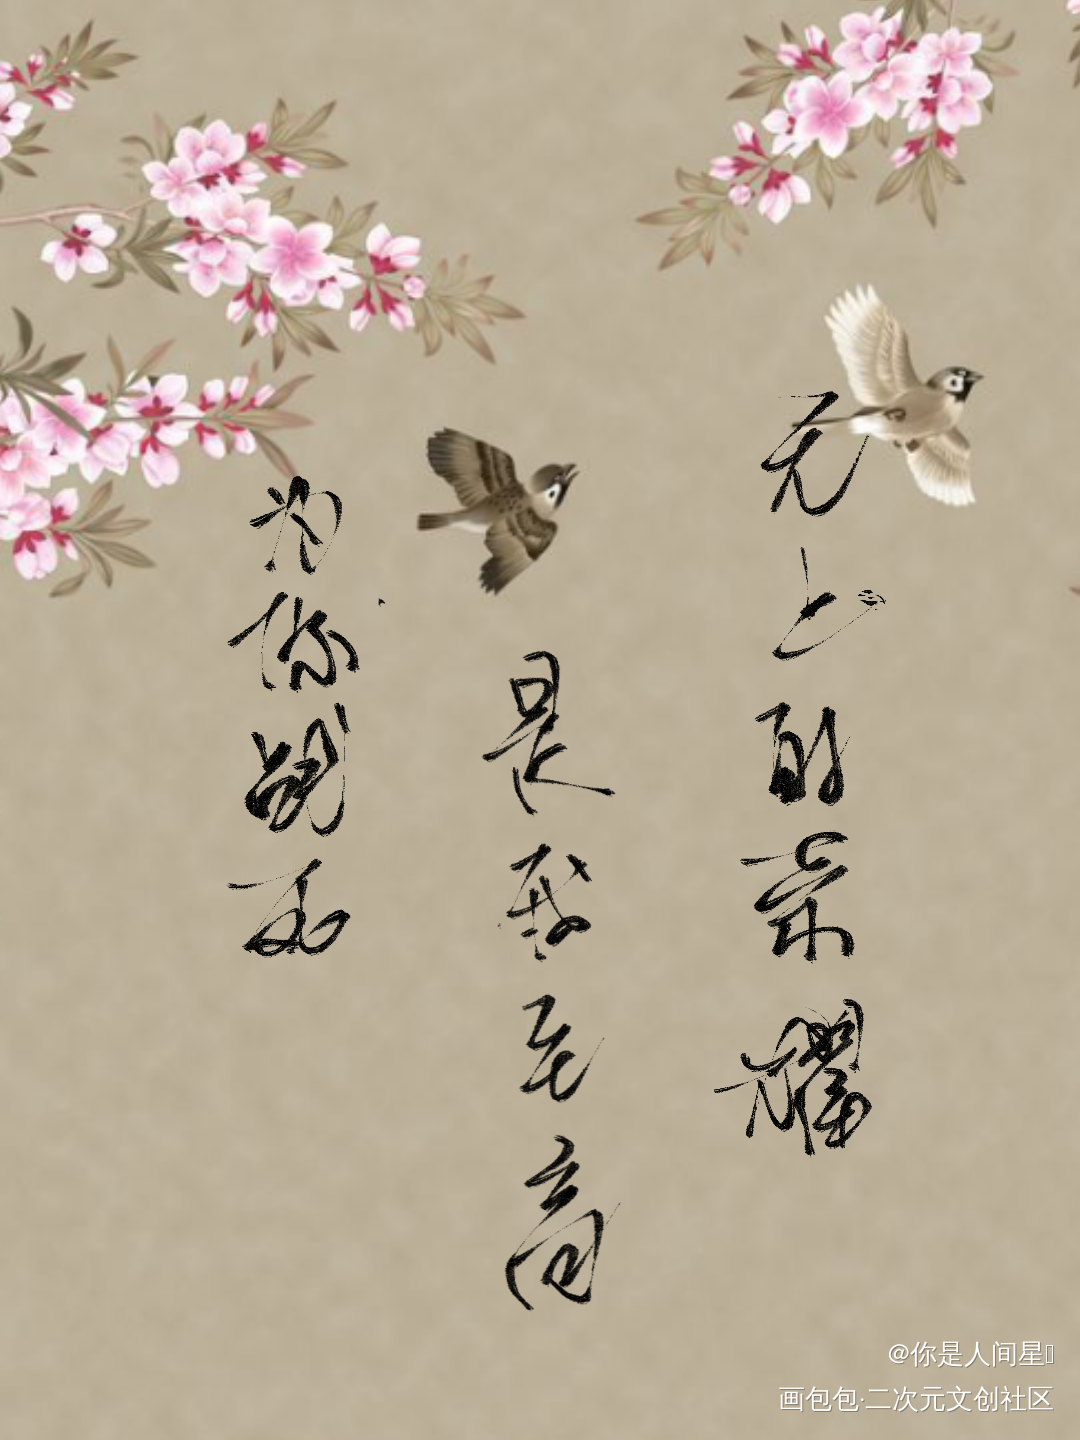 无上的荣耀
是我至高
为你战死
@你是人间星
画包包·二次元文创社区